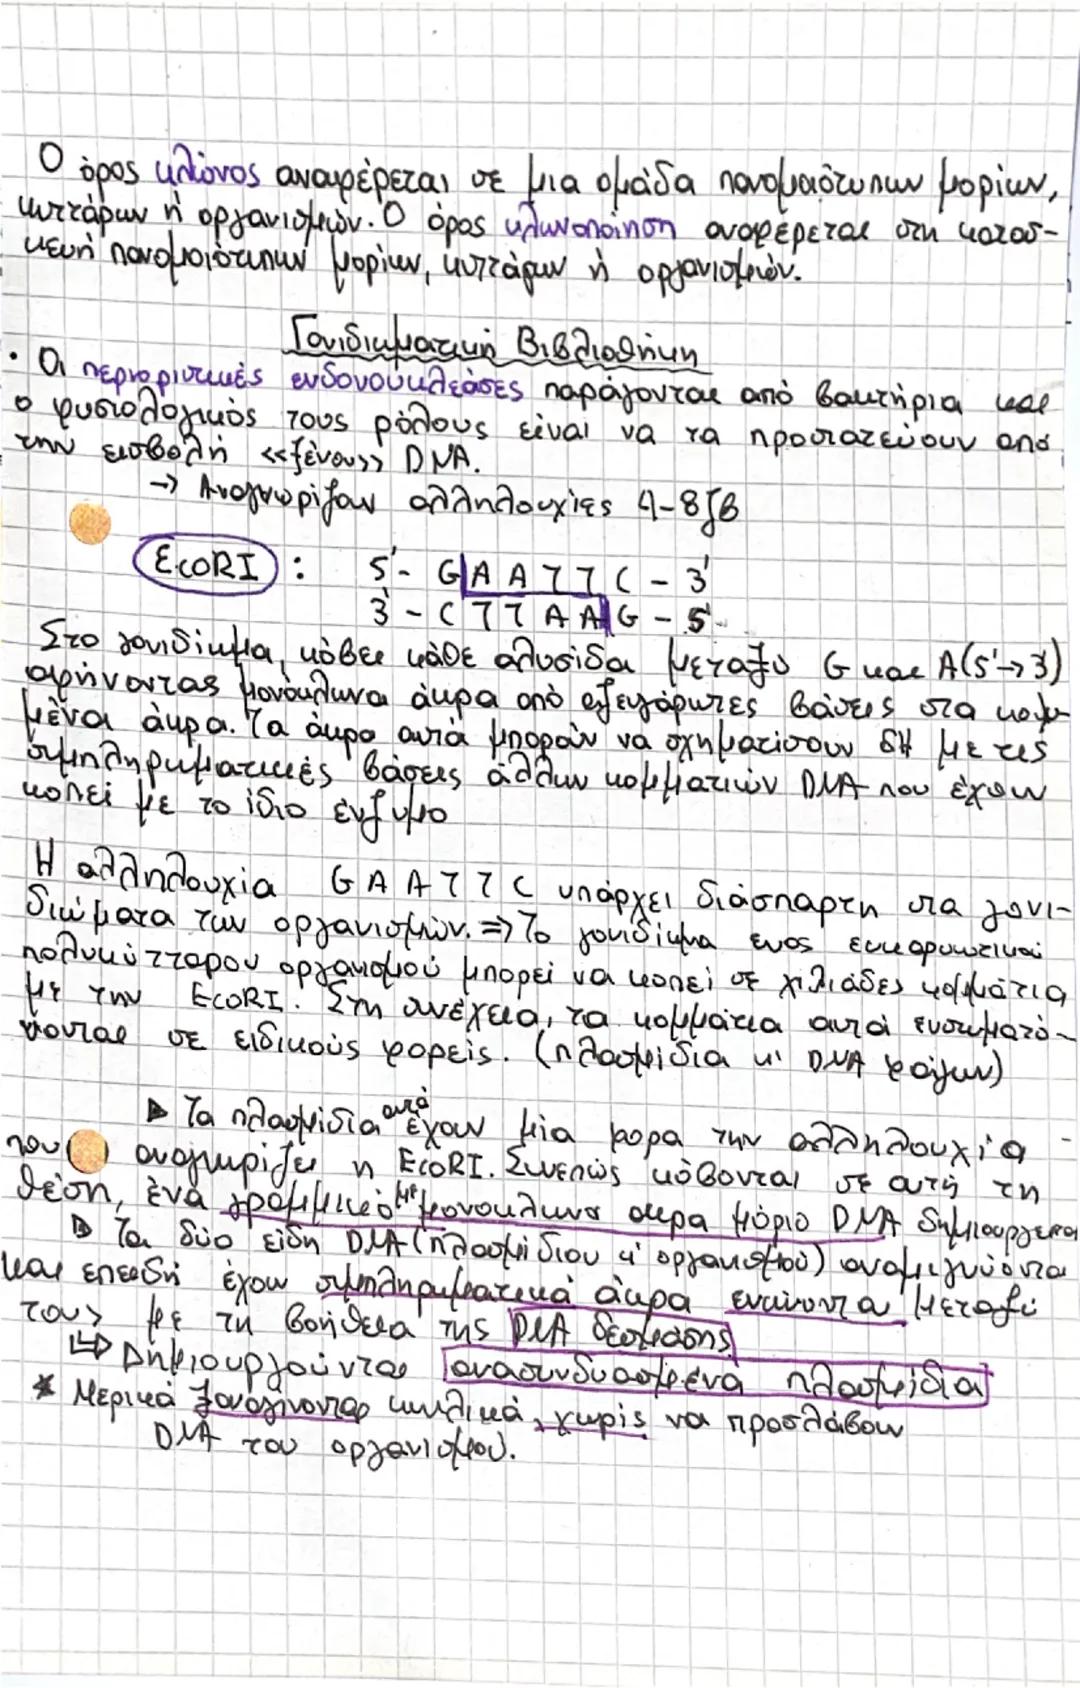 Ο όρος κλώνος αναφέρεται σε μια ομάδα πανομοιότυπων μορίων,
κυττάρων ή οργανισμών. Ο όρος κλωνοποίηση αναφέρεται στη κατασ-
κευή πανομοιότυπων μορίων, κυττάρων ή οργανισμών.
Γονιδιωματική Βιβλιοθήκη
• Οι περιοριστικές ενδονουκλεάσες παράγονται από βακτήρια και
ο φυσιολογικός τους ρόλους είναι να τα προστατεύουν από
την εισβολή «ξένου» DNA.
→ Αναγνωρίζουν αλληλουχίες 4-8ζβ
EcoRI : 5'- G A A T T C - 3'
3'- C T T A A G - 5'
Στο γονιδίωμα, κόβει κάθε αλυσίδα μεταξύ G και A (5'→3')
αφήνοντας μονόκλωνα άκρα από αζευγάρωτες βάσεις στα κομ-
μένα άκρα. Τα άκρα αυτά μπορούν να σχηματίσουν δΗ με τις
συμπληρωματικές βάσεις άλλων κομματιών DNA που έχουν
κοπεί με το ίδιο ένζυμο
Η αλληλουχία G A A T T C υπάρχει διάσπαρτη στα γονι-
διώματα των οργανισμών. ⇒ Το γονιδίωμα ενός ευκαρυωτικού
πολυκύτταρου οργανισμού μπορεί να κοπεί σε χιλιάδες κομμάτια
με την EcoRI. Στη συνέχεια, τα κομμάτια αυτά ενσωματώ-
νονται σε ειδικούς φορείς. (πλασμίδια κ' DNA φάγων)
▶ Τα πλασμίδια αυτά έχουν μία φορα την αλληλουχία
που αναγνωρίζει η EcoRI. Συνεπώς κόβονται σε αυτή τη
θέση, ένα γραμμικό με μονοκλωνα ακρα μόριο DNA δημιουργείται
▶ Τα δύο είδη DNA (πλασμιδίου κ' οργανισμού) αναμιγνύονται
και επειδή έχουν συμπληρωματικά άκρα ενώνονται μεταξύ
τους με τη βοήθεια της DNA δεσμάσης
↳ Δημιουργούνται ανασυνδυασμένα πλασμίδια
* Μερικά ξαναγίνονται κυκλικά, χωρίς να προσλάβουν
DNA του οργανισμού.